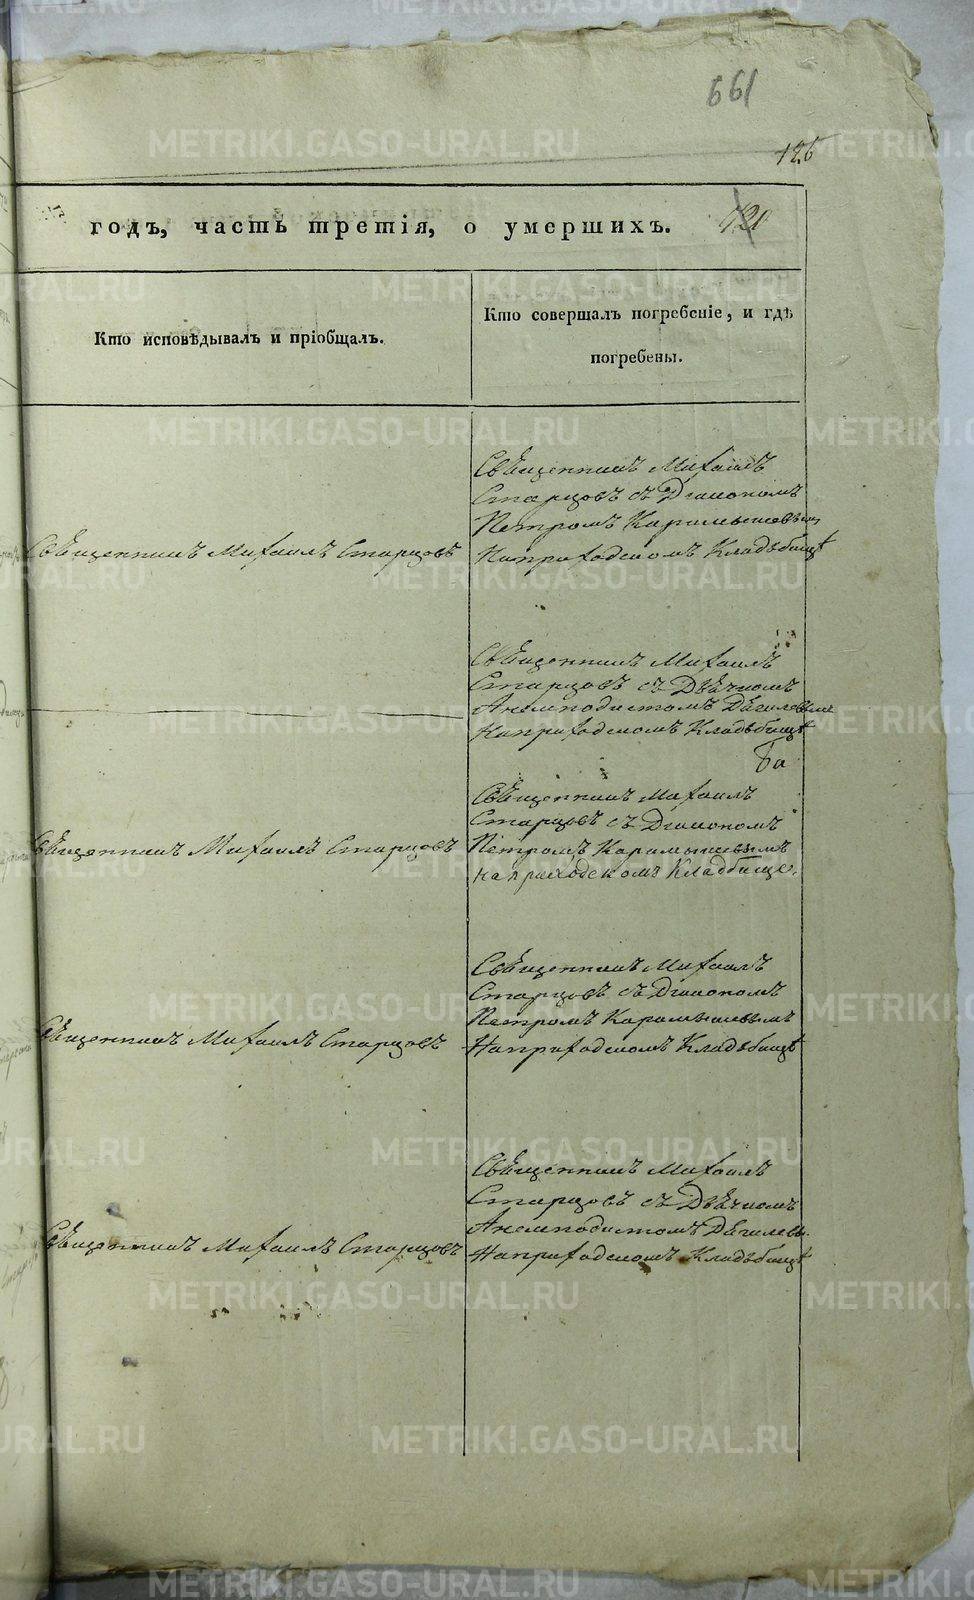 661
126
годъ, часть третія, о умершихъ. 120
Кто исповѣдывалъ и пріобщалъ.
Кто совершалъ погребеніе, и гдѣ
погребены.
Священникъ Михаилъ
Старцовъ съ Діакономъ
Петромъ Карамышевымъ
Священникъ Михаилъ Старцовъ
На приходскомъ Кладбищѣ
Священникъ Михаилъ
Старцовъ съ Дьячкомъ
Анемподистомъ Дягилевым
На приходскомъ Кладбищѣ
Священникъ Михаилъ
Старцовъ съ Діакономъ
Священникъ Михаилъ Старцовъ
Петромъ Карамышевымъ
на приходскомъ Кладбище.
Священникъ Михаилъ
Старцовъ съ Діакономъ
Петромъ Карамышевымъ
Священникъ Михаилъ Старцовъ
На приходскомъ Кладбищѣ
Священникъ Михаилъ
Старцовъ съ Дьячкомъ
Анемподистомъ Дягилевы.
Священникъ Михаилъ Старцовъ
На приходскомъ Кладбищѣ
METRIKI.GASO-URAL.RU